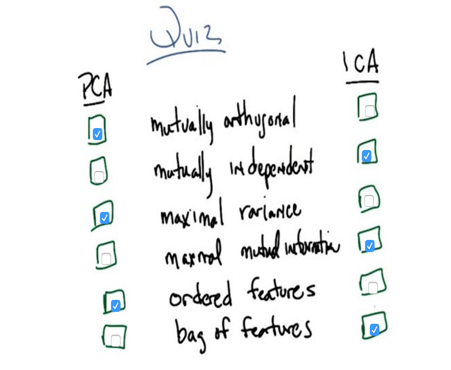 Quiz
PCA
ICA
mutually orthogonal
mutually independent
maximal variance
maximal mutual information
ordered features
bag of features